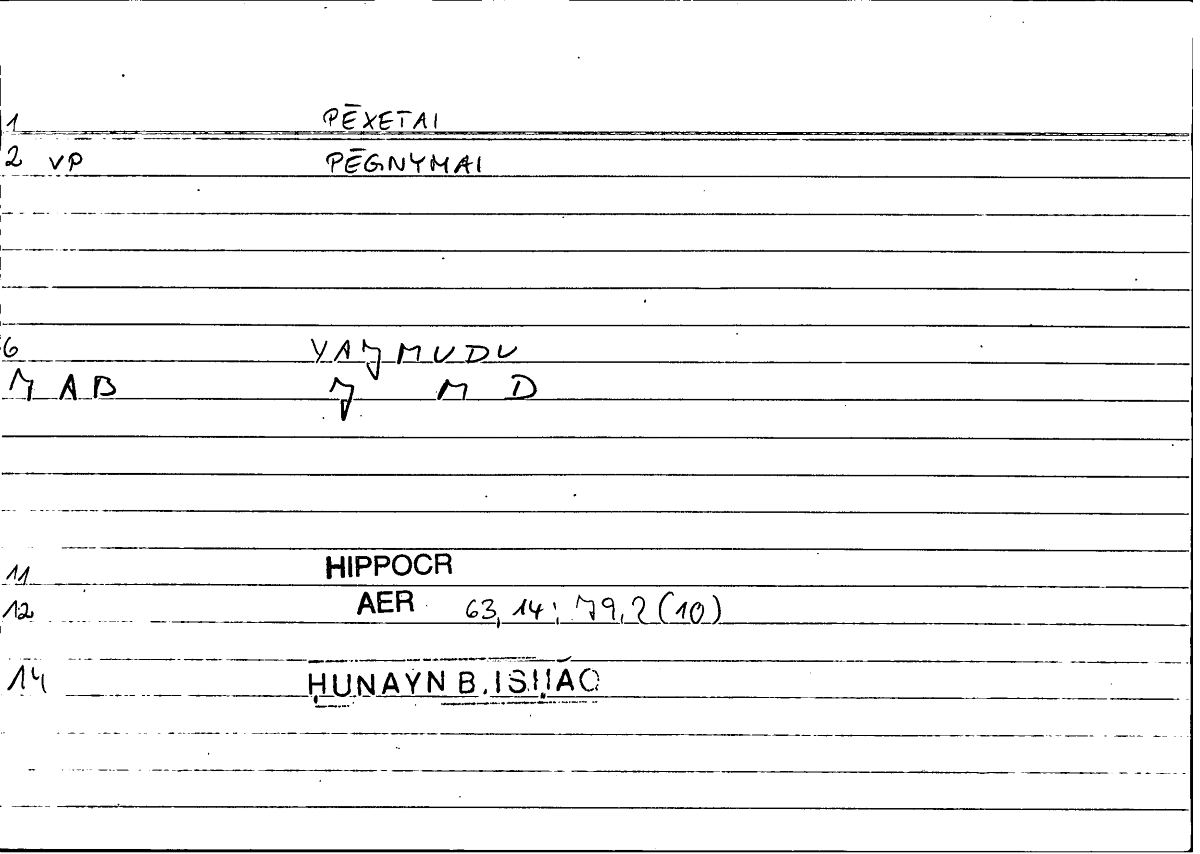 1 PĒXETAI
2 VP PĒGNYMAI
6 YAJMUDU
7 AB J M D
11 HIPPOCR
12 AER 63,14; 79,2(10)
14 ḤUNAYN B. ISḤĀQ